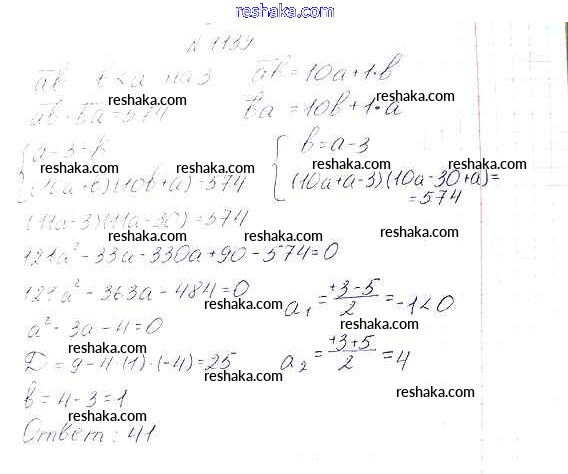 reshaka.com
N 1139
ab b<a на 3 ab = 10a+1·b
reshaka.com reshaka.com
ab · ba = 574 ba = 10b+1·a
{ a-3=b { b=a-3
reshaka.com reshaka.com reshaka.com
(10a+b)(10b+a)=574 (10a+a-3)(10a-30+a)=
=574
reshaka.com reshaka.com
(11a-3)(11a-30)=574
reshaka.com reshaka.com
121a² - 33a - 330a + 90 - 574 = 0
reshaka.com
121a² - 363a - 484 = 0 a₁ = +3-5/2 = -1 < 0
reshaka.com
a² - 3a - 4 = 0
reshaka.com
D = 9 - 4·(1)·(-4) = 25 a₂ = +3+5/2 = 4
reshaka.com reshaka.com
b = 4 - 3 = 1
reshaka.com
Ответ: 41